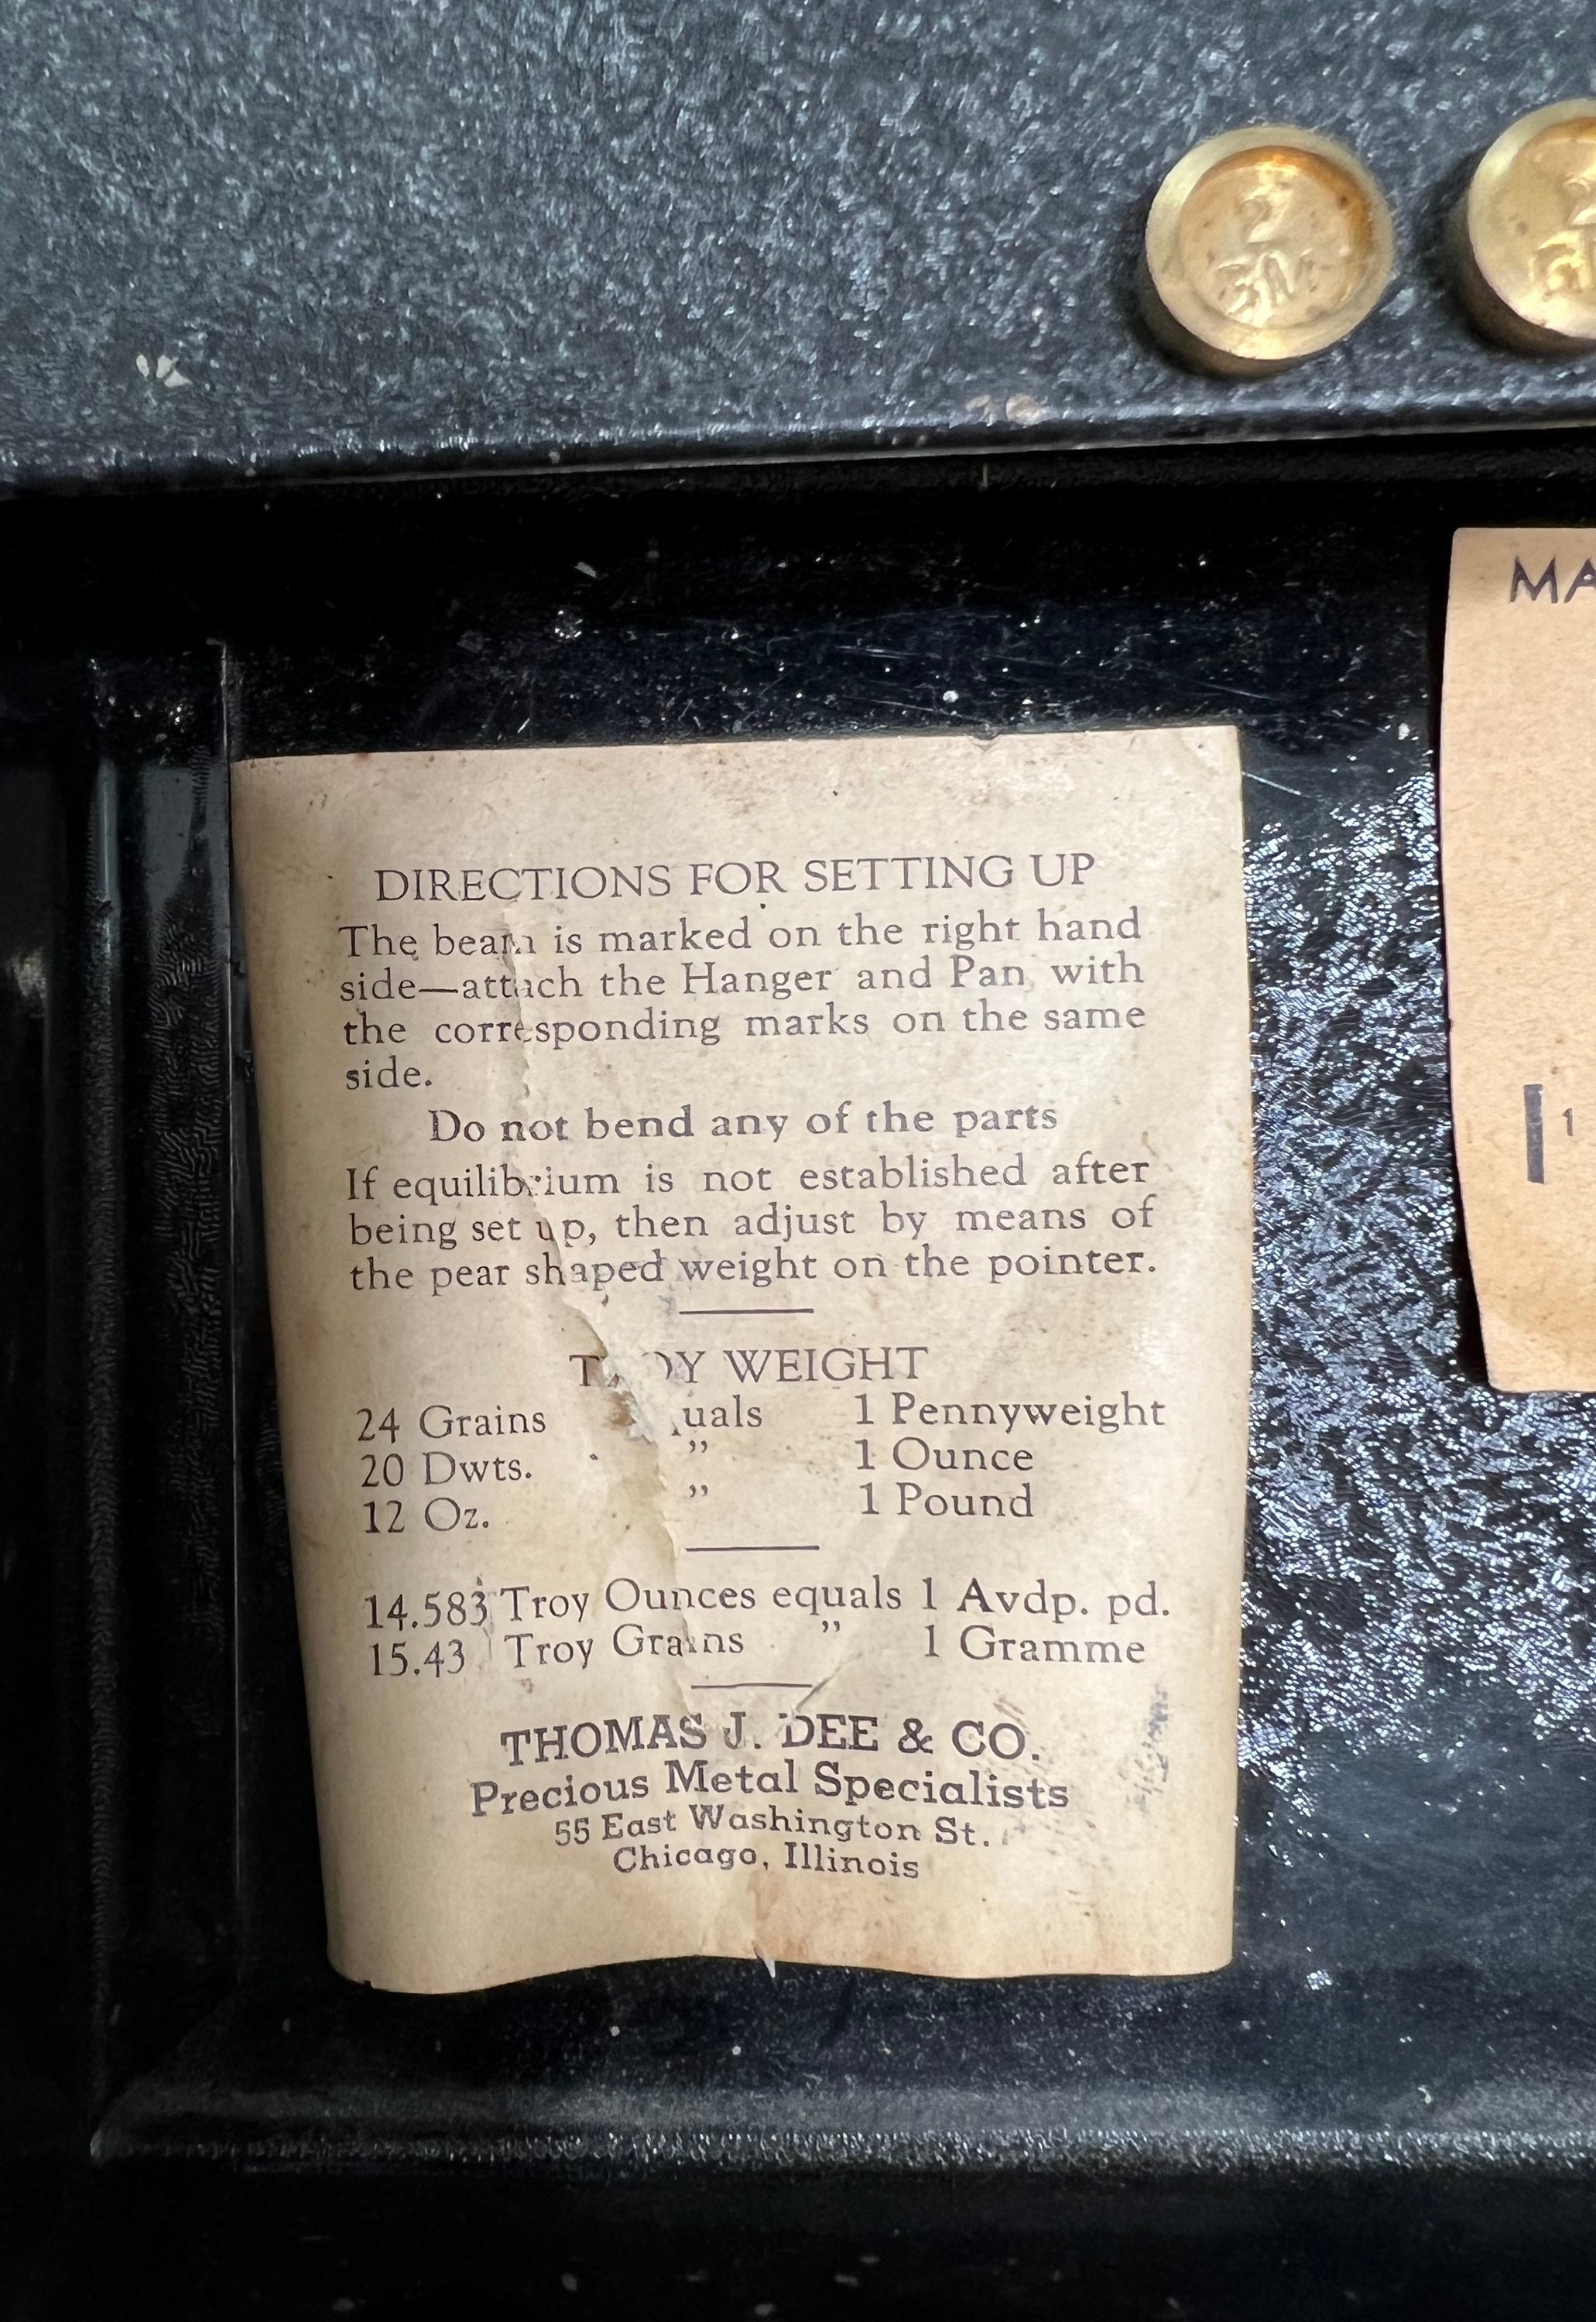 2
GM
MA
DIRECTIONS FOR SETTING UP
The beam is marked on the right hand
side—attach the Hanger and Pan with
the corresponding marks on the same
side.
Do not bend any of the parts
If equilibrium is not established after
being set up, then adjust by means of
the pear shaped weight on the pointer.
1
WEIGHT
24 Grains uals 1 Pennyweight
20 Dwts. ” 1 Ounce
12 Oz. ” 1 Pound
14.583 Troy Ounces equals 1 Avdp. pd.
15.43 Troy Grains ” 1 Gramme
THOMAS J. DEE & CO.
Precious Metal Specialists
55 East Washington St.
Chicago, Illinois